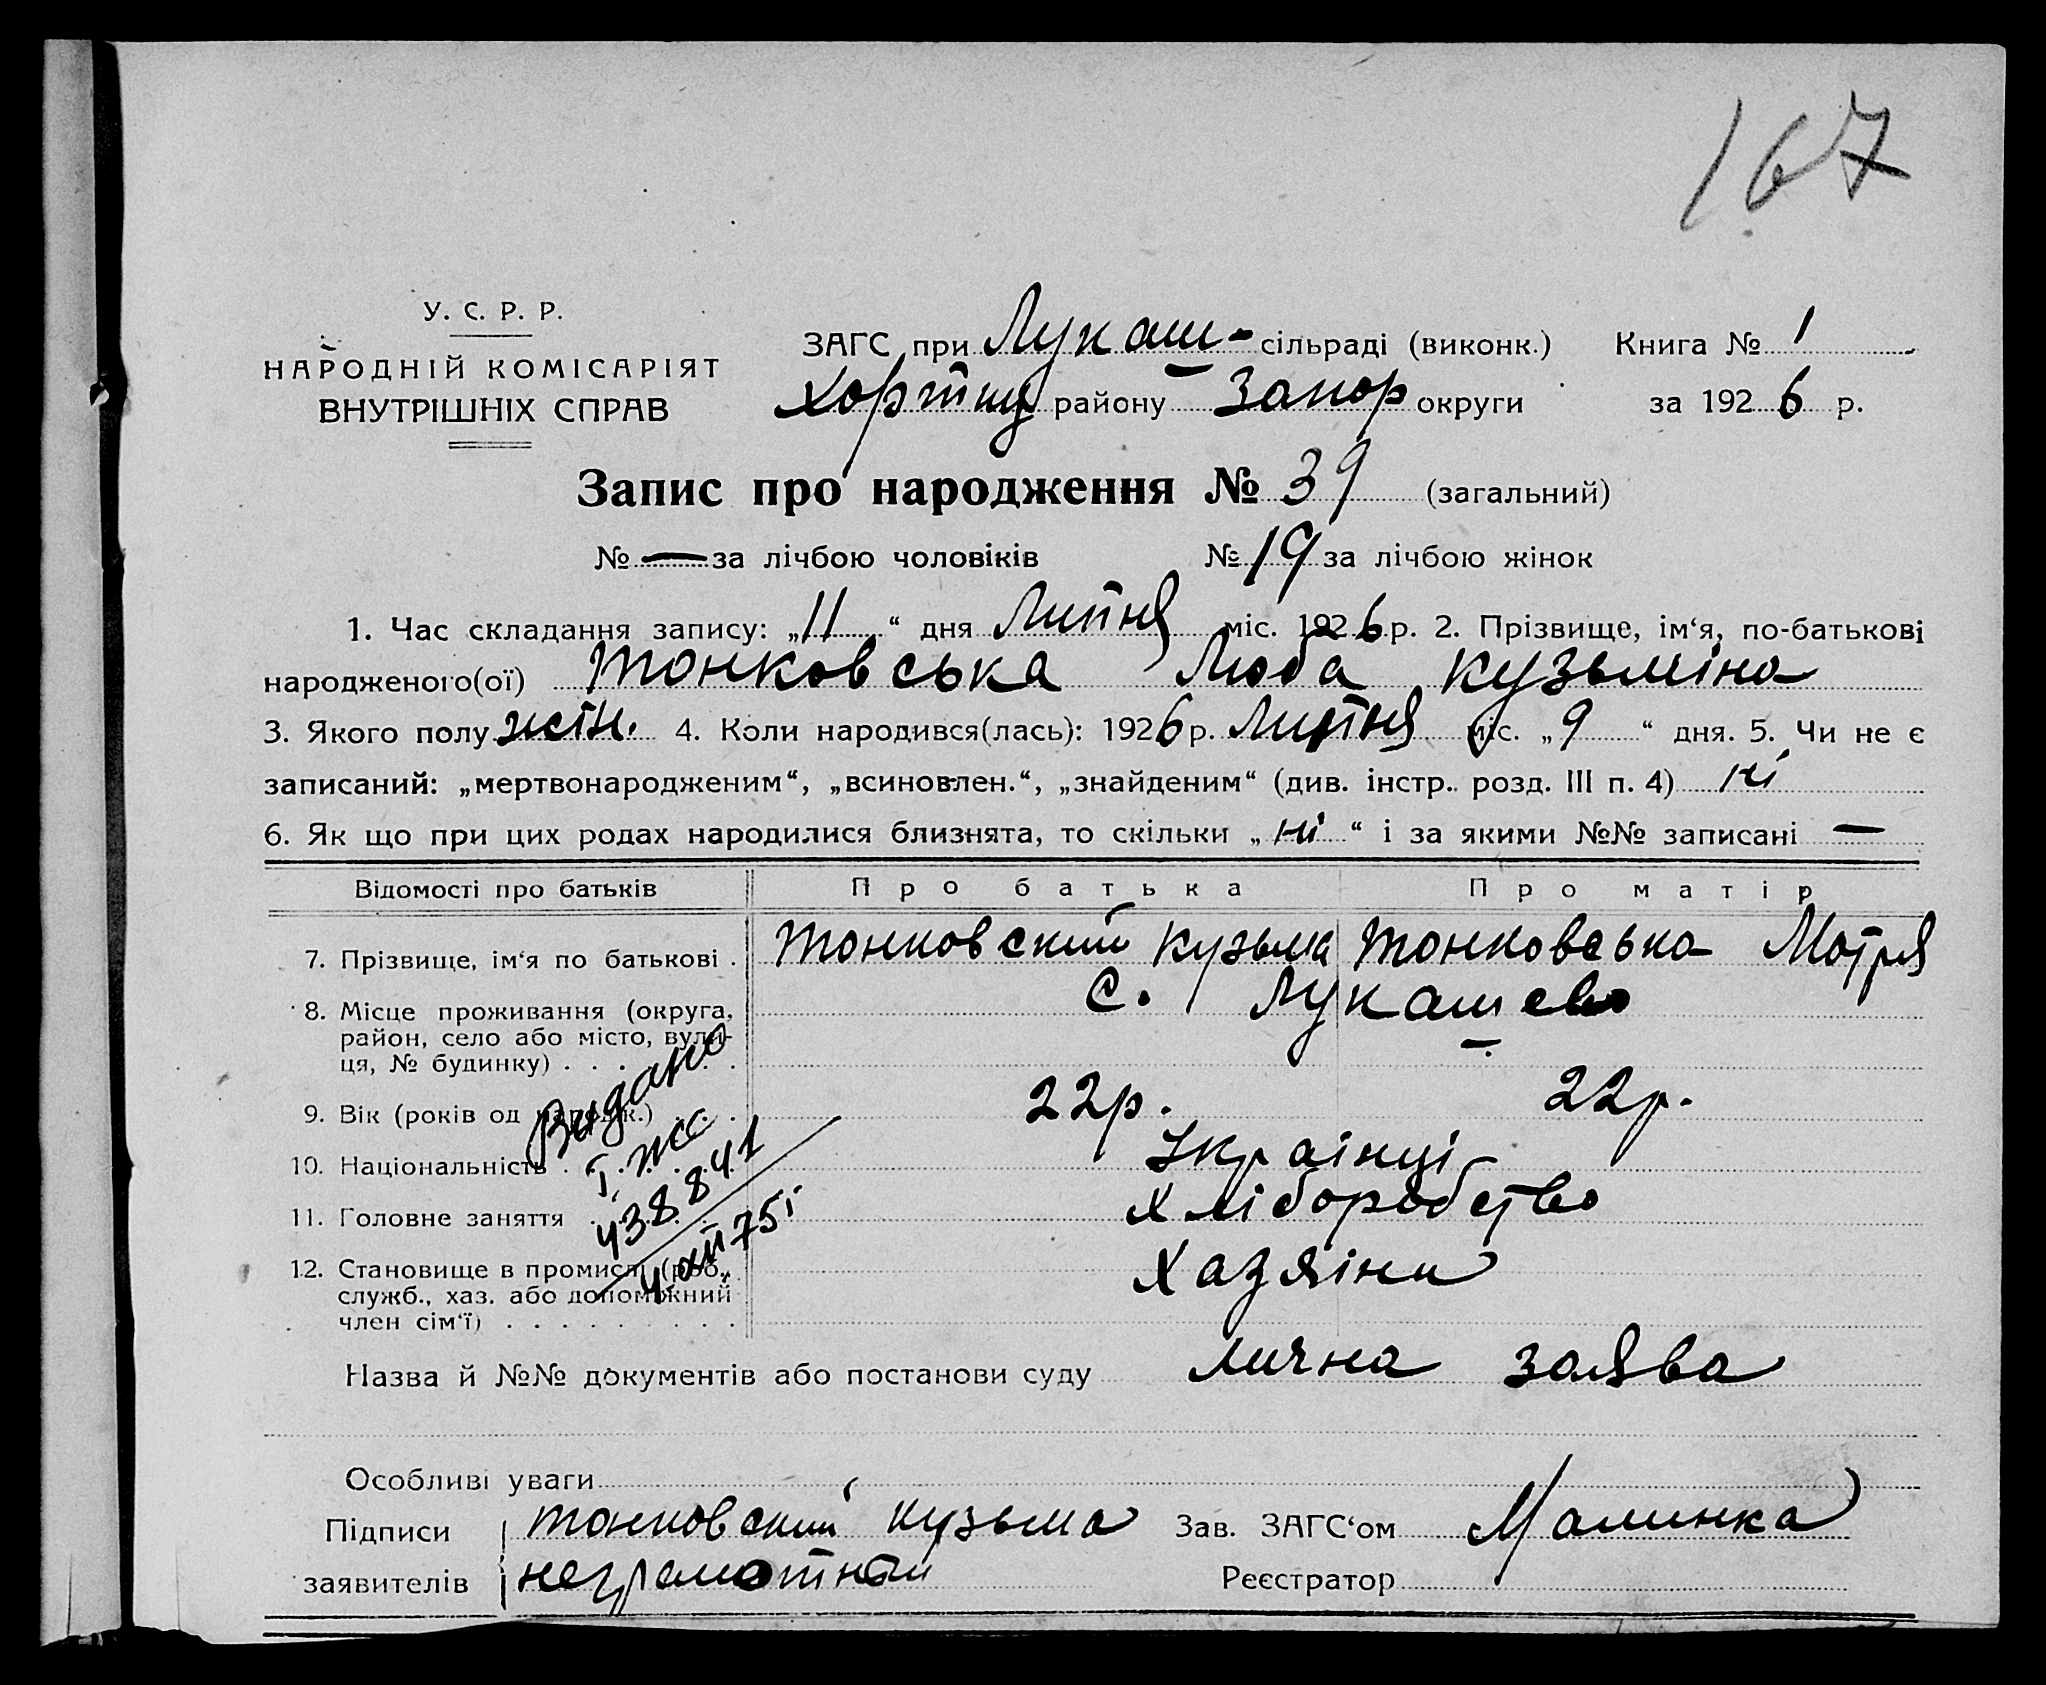 167
У. С. Р. Р.
НАРОДНІЙ КОМІСАРІЯТ
ВНУТРІШНІХ СПРАВ
ЗАГС при Лукаш- сільраді (виконк.) Книга № 1
Хортиц району Запор округи за 1926 р.
Запис про народження № 39 (загальний)
№ — за лічбою чоловіків № 19 за лічбою жінок
1. Час складання запису: „11“ дня Липня міс. 1926 р. 2. Прізвище, ім‘я, по-батькові
народженого(ої) Тонковська Люба Кузьміна
3. Якого полу жін. 4. Коли народився(лась): 1926 р. Липня міс. „9“ дня. 5. Чи не є
записаний: „мертвонародженим“, „всиновлен.“, „знайденим“ (див. інстр. розд. III п. 4) ні
6. Як що при цих родах народилися близнята, то скільки „ні“ і за якими №№ записані —
Відомості про батьків Про батька Про матір
7. Прізвище, ім‘я по батькові . Тонковский Кузьма Тонковська Мотря
8. Місце проживання (округа, район, село або місто, вулиця, № будинку) . . . С. Лукашево
9. Вік (років од народж.) . . 22р. 22р.
10. Національність . . . Українці
11. Головне заняття . . . Хліборобство
12. Становище в промислі (роб., служб., хаз. або допоможний член сім‘ї) . . . . . . . . . Хазяїни
Видано
438841
Назва й №№ документів або постанови суду Лична заява
Особливі уваги
Підписи Тонковский Кузьма Зав. ЗАГС‘ом Малинка
заявителів неграмотной Реєстратор